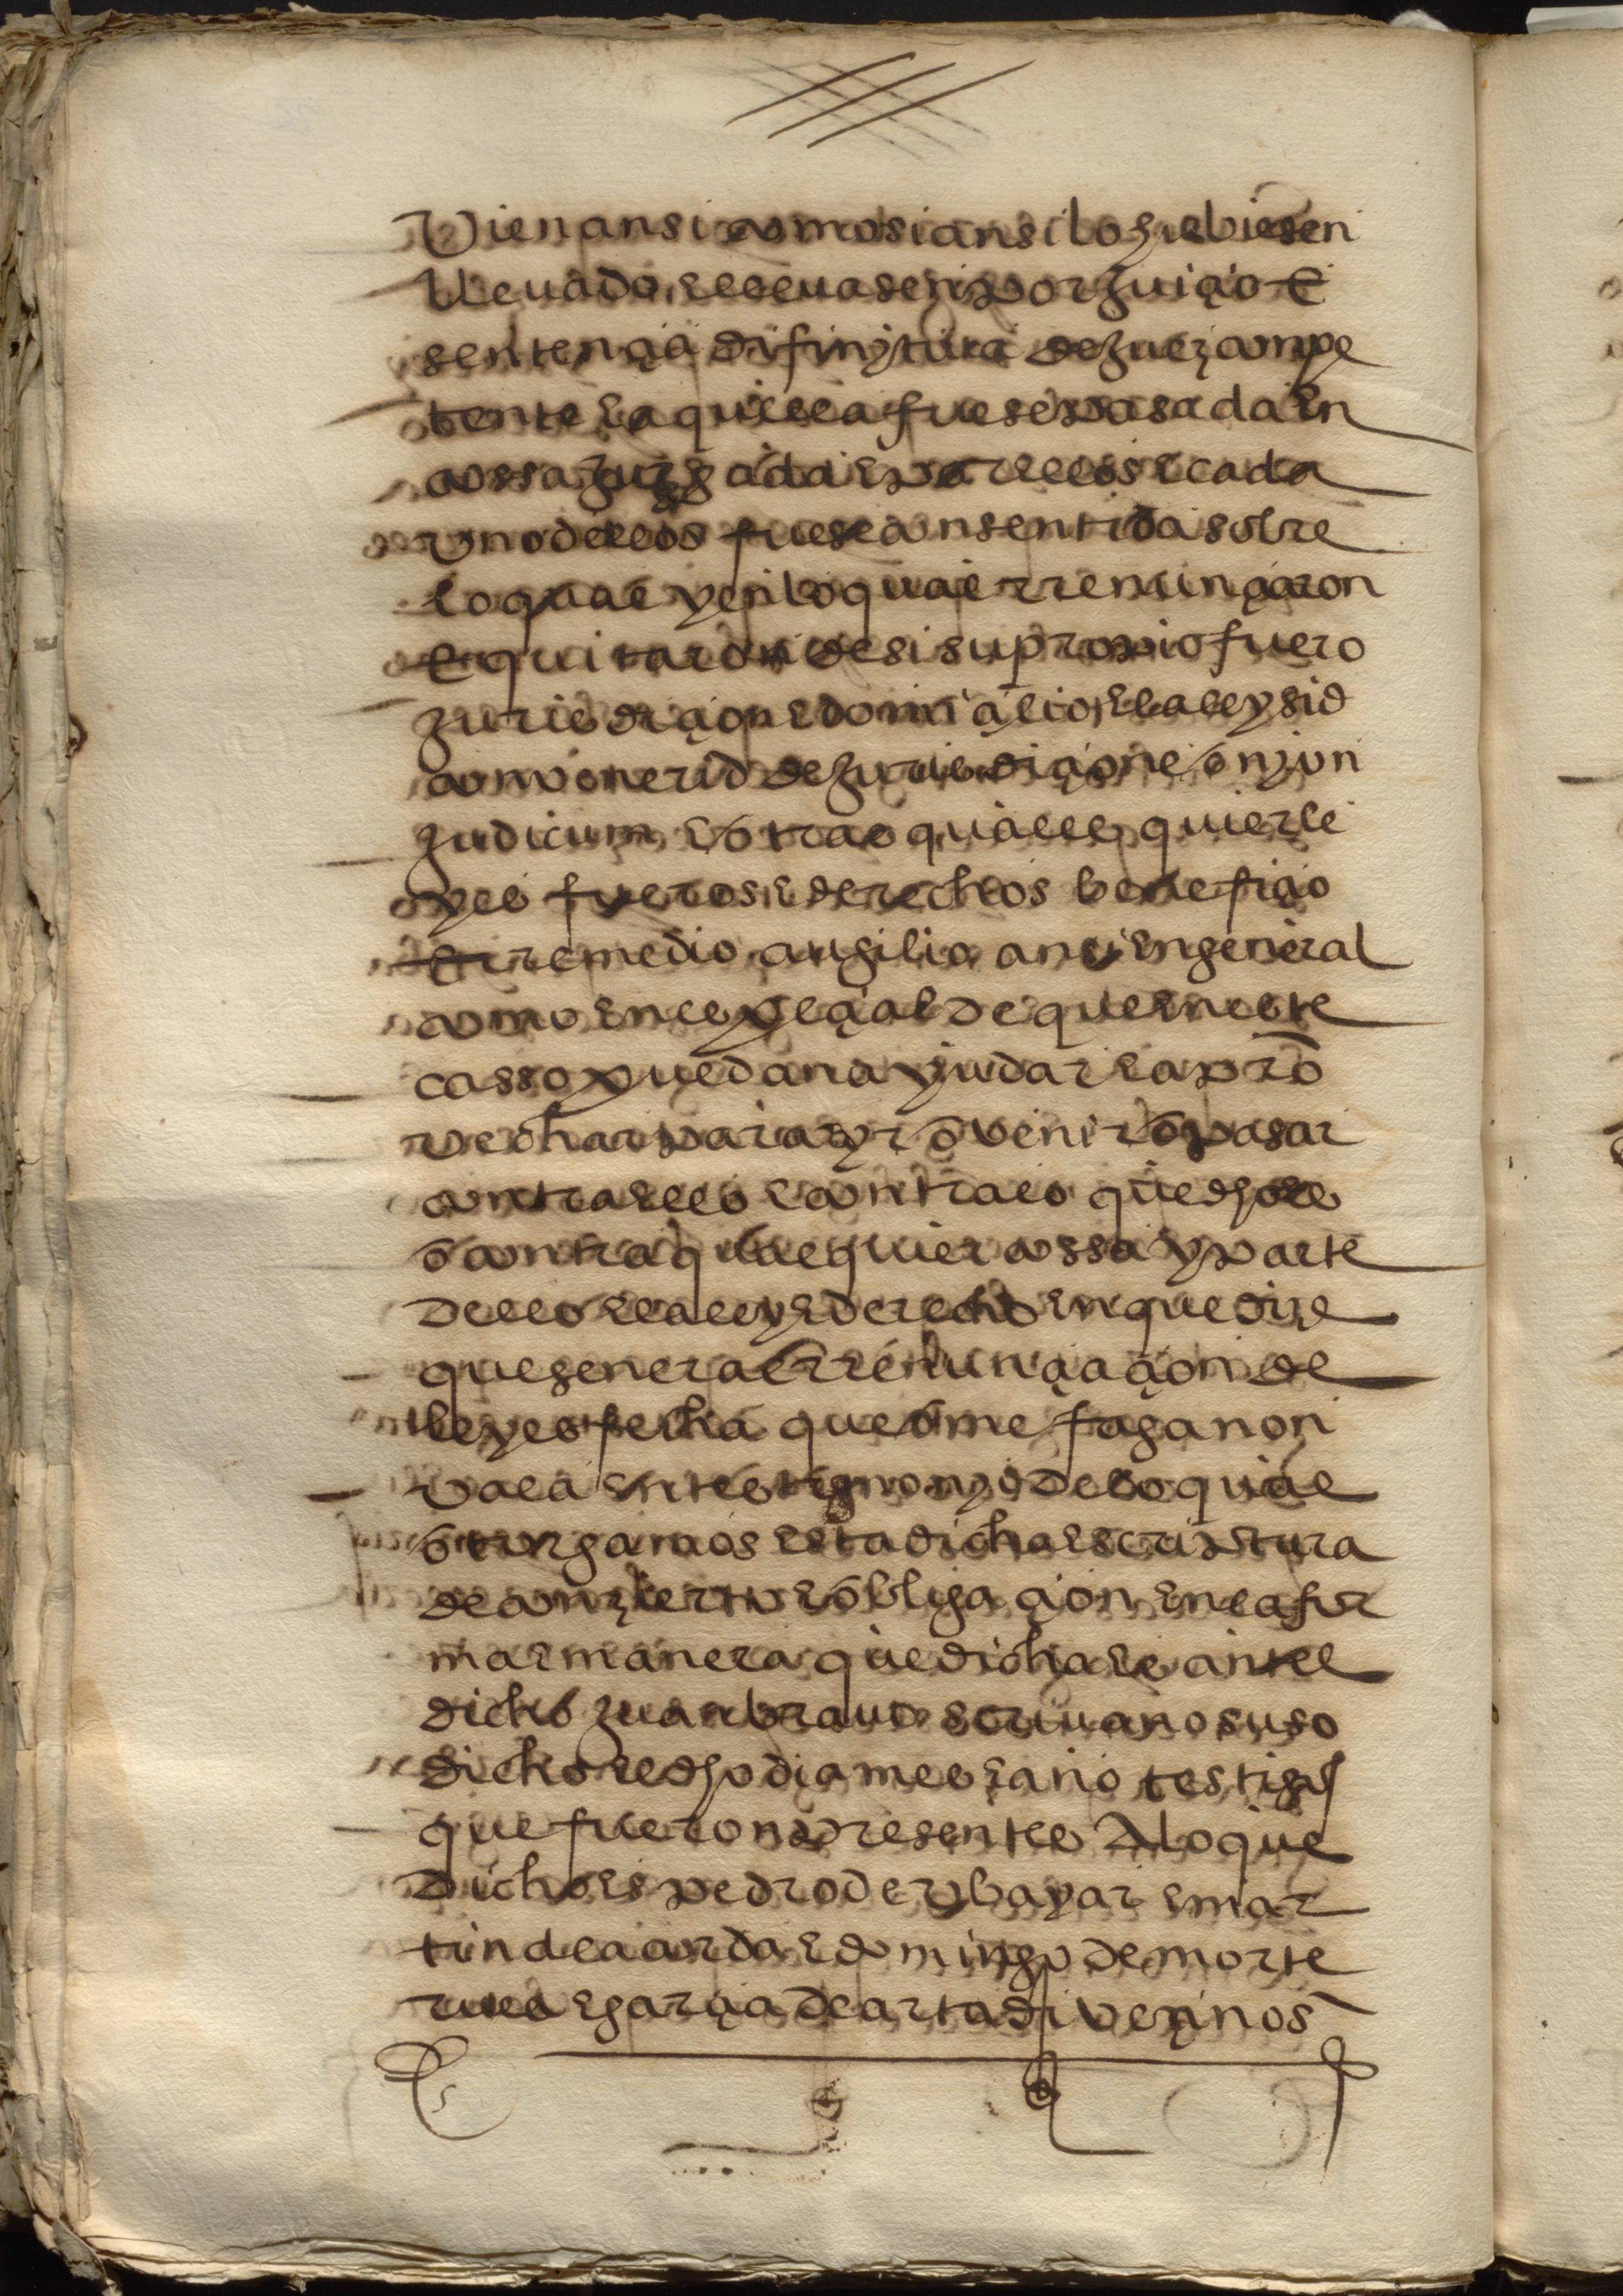 bien ansi como si ansi lo hubiesen
lleuado e lleuasen por juiçio e
sentençia difinytiba de juez conpe
tente e aquella fuese pasada en
cossa juzgada e por ellos e cada
vno dellos fuese consentida sobre
lo qual y en lo qual rrenunçiaron
e quitaron de si su propio fuero
jurisdiçion e domiçilio e la ley sid
convenerid de jurisdiçione onjun
judicum e otras qualesquier le
yes fueros e derechos benefiçio
e rremedio ausilio ansi en general
como en espeçial de que en este
casso puedan ayudar e apro
vechar para yr o venir o pasar
contra ello e contra lo que dho es
o contra qualquier cossa y parte
dello e la ley e derecho en que dize
que general rrenunçiaçion de
leyes fecha que ome faga non
vala en testimonyo de lo qual
otorgamos esta dicha escriptura
de conzierto e obligaçion en la for
ma e manera que dicha es ante el
dicho juan brauo scriuano suso
dicho e dho dia mes e año testigos
que fueron presentes a lo que
dicho es pedro de ybayar e mar
tin de la corda e domingo de morte
rues e garçia de artadi veçinos